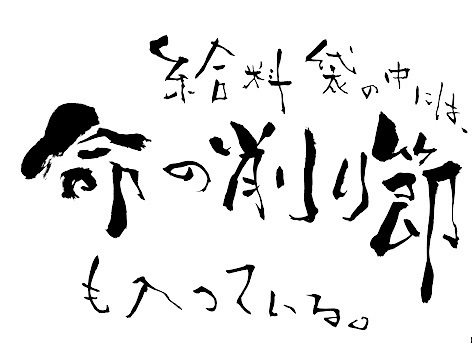 給料袋の中には、
命の削り節
も入っている。